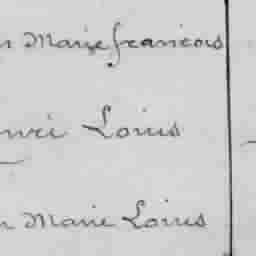 n Marie francois
nri Louis
n Marie Louis